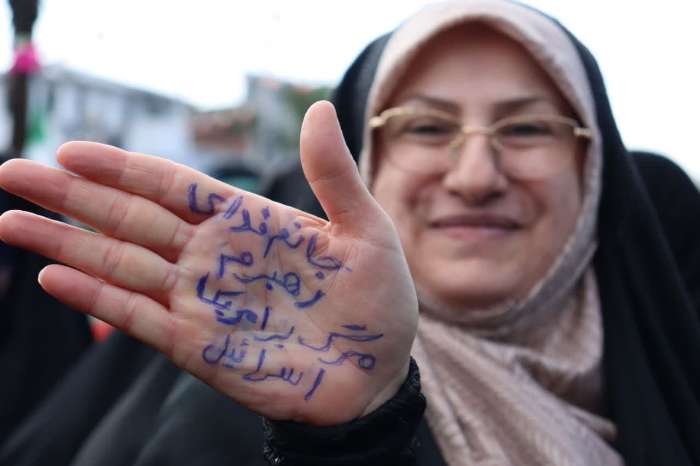 جانم فدای
رهبرم
مرگ بر امریکا
اسرائیل